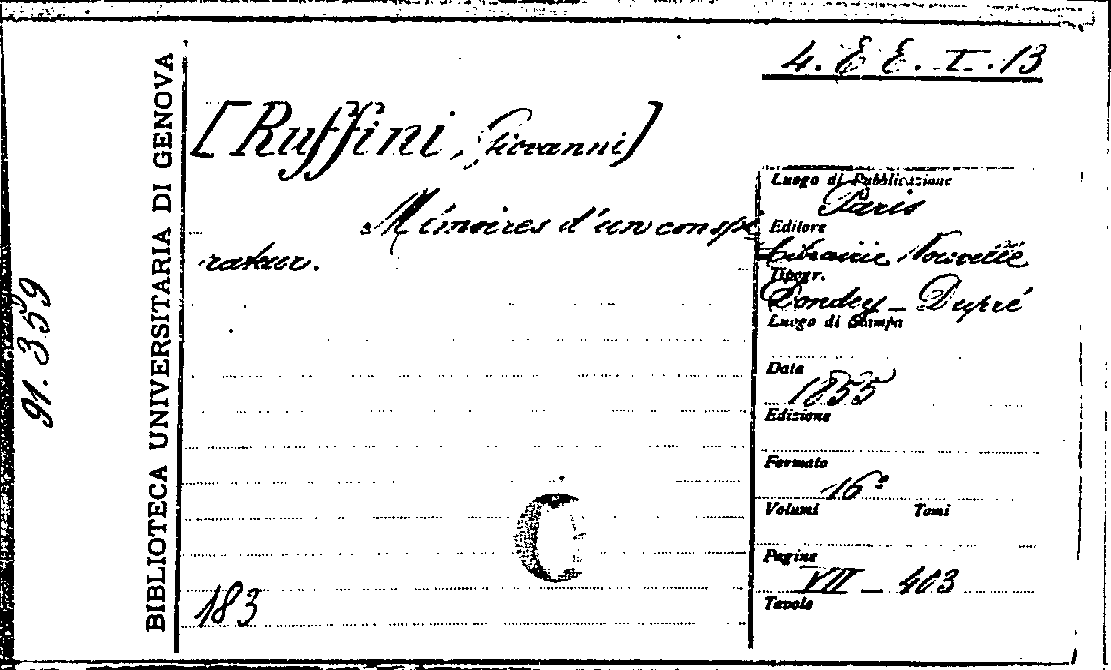 4. E E. I. 13
[Ruffini, Giovanni]
Mémoires d'un conspi
rateur.
Luogo di Pubblicazione
Paris
Editore
Librairie Nouvelle
Tipogr.
Dondey - Dupré
Luogo di Stampa
Data
1855
Edizione
Formato
16°
Volumi Tomi
Pagine
VII - 403
Tavole
183
C
BIBLIOTECA UNIVERSITARIA DI GENOVA
91.359